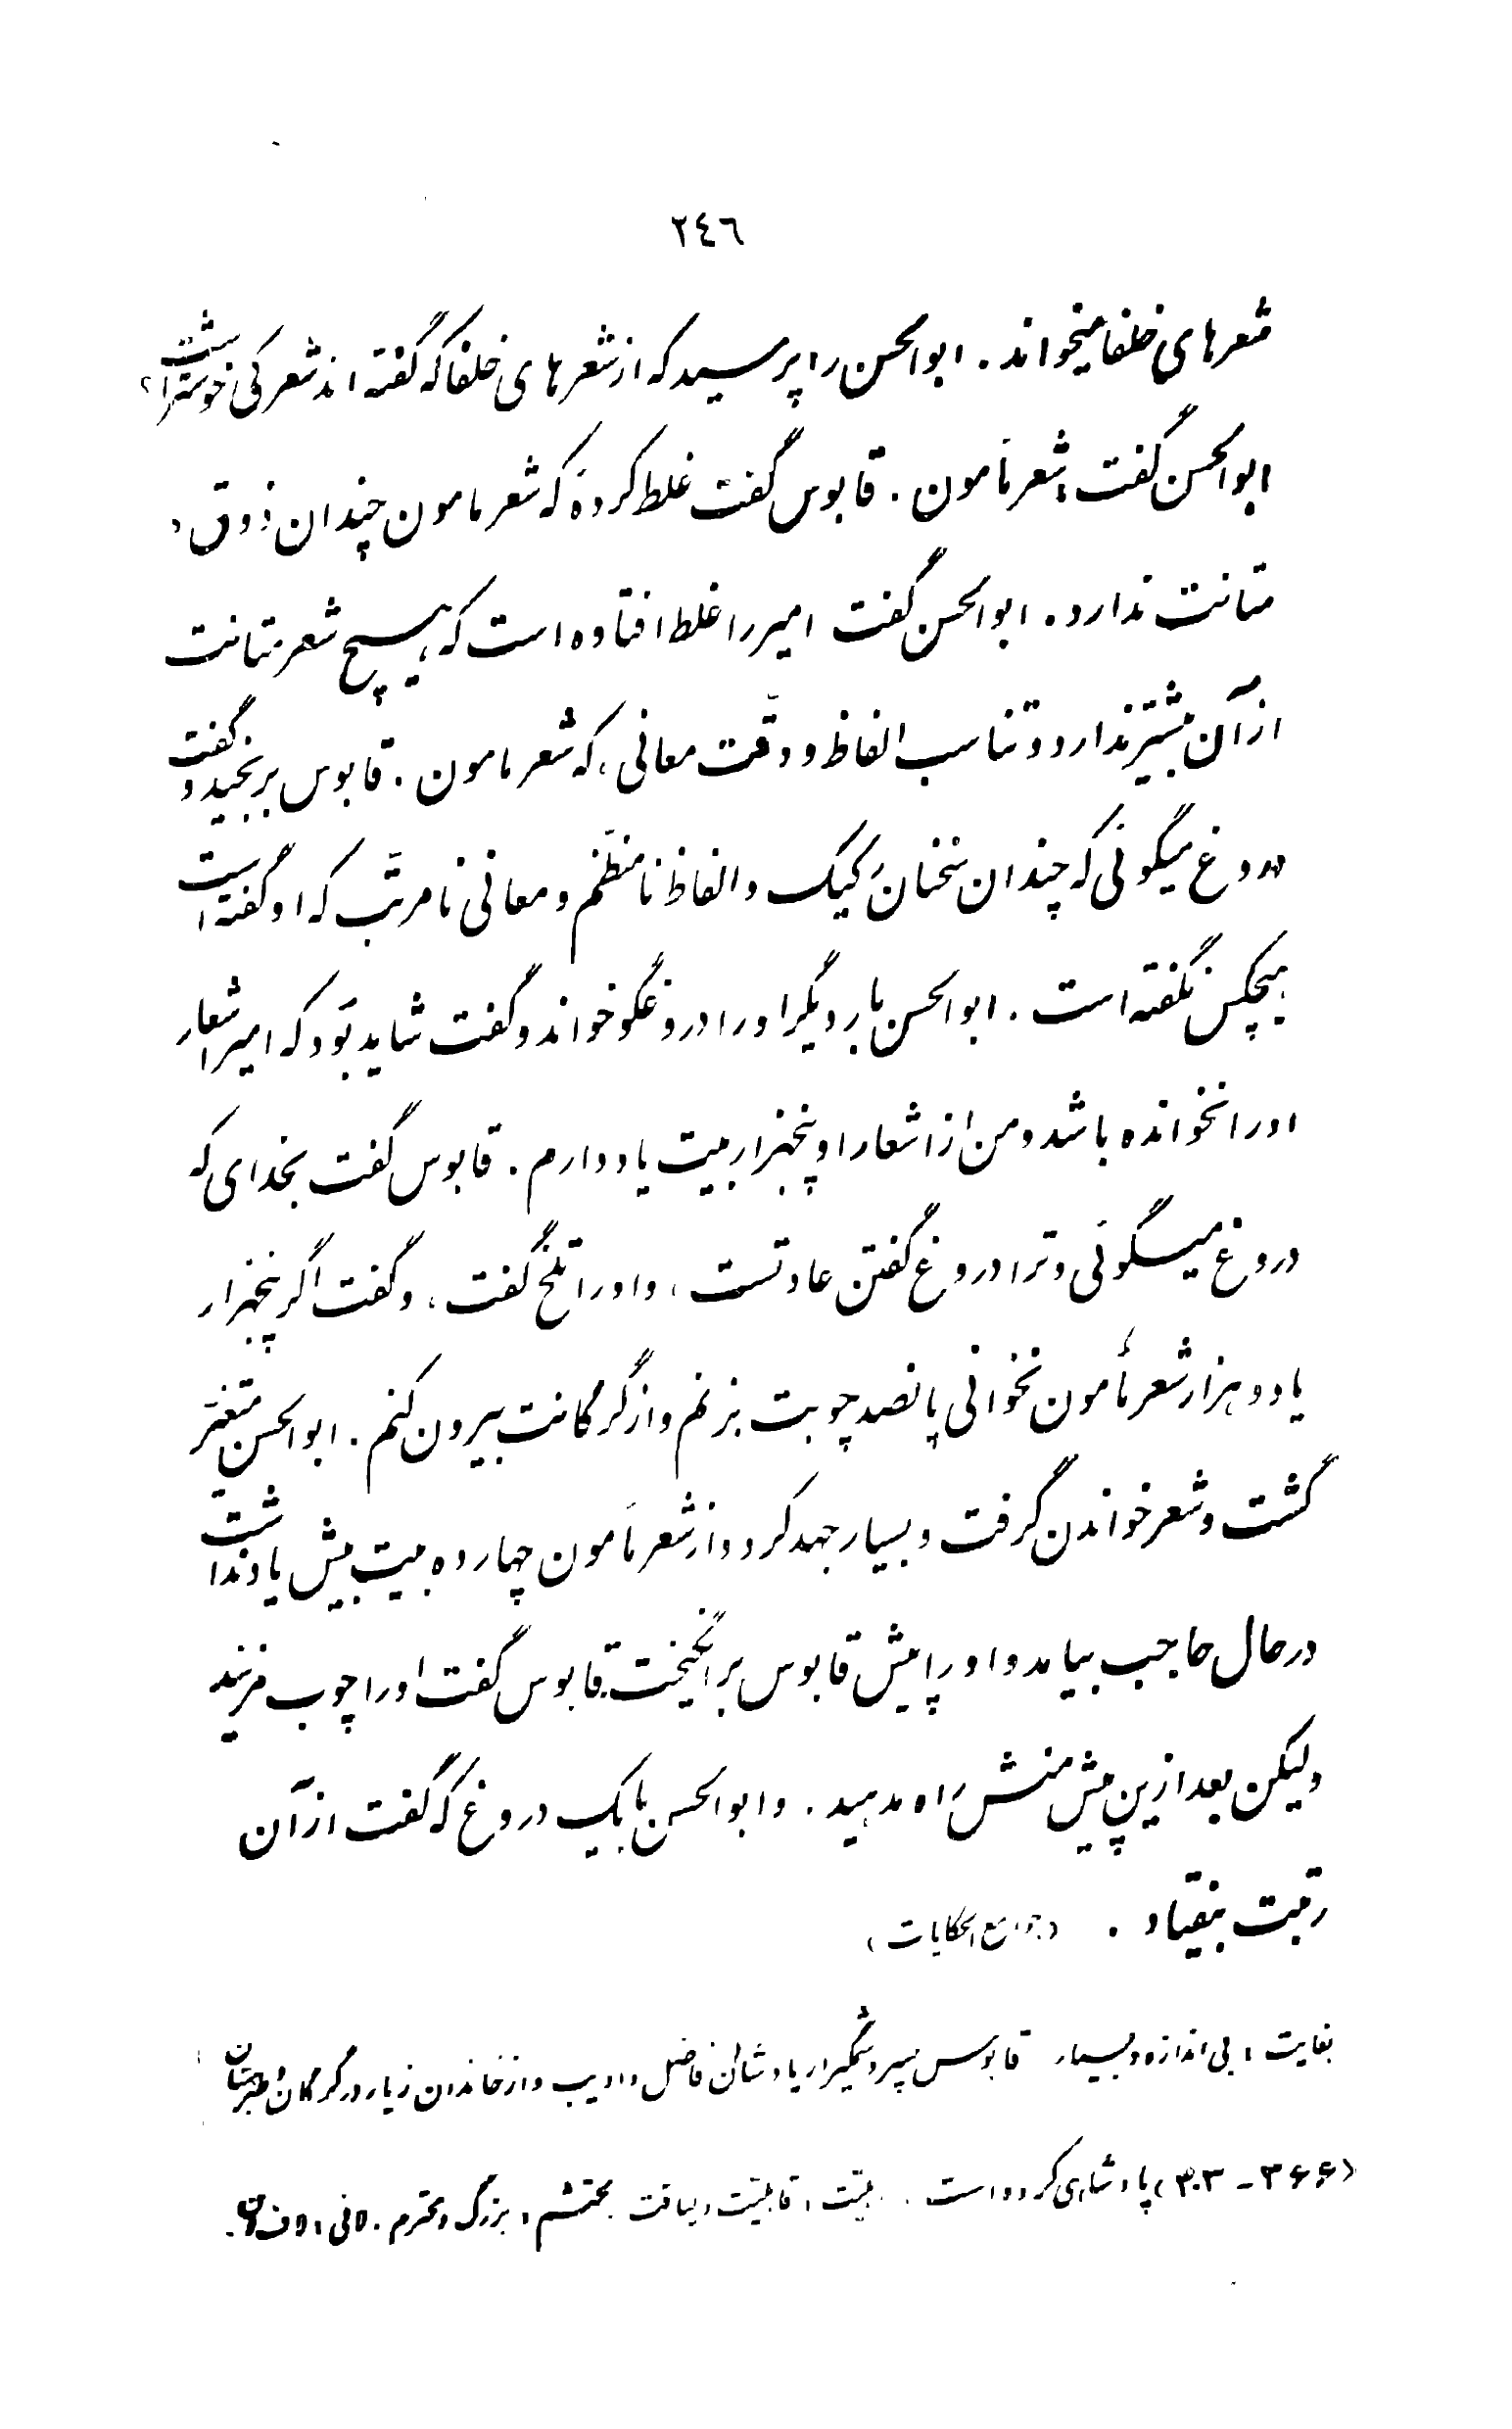 ٢٤٦
شعرهای خلفا میخواند . ابوالحسن را پرسید که از شعرهای خلفا که گفته اند شعر کی خوشتر است ؟
ابوالحسن گفت : شعر مأمون . قابوس گفت غلط کردهٔ که شعر مامون چندان ذوق و
متانت ندارد . ابوالحسن گفت امیر را غلط افتاده است که هیچ شعر متانت
از آن بیشتر ندارد و تناسب الفاظ و دقّت معانی ، که شعر مامون . قابوس برنجید و گفت
دروغ میگوئی که چندان سخنان رکیک و الفاظ نامنظّم و معانی نامرتّب که او گفته است
هیچکس نگفته است . ابوالحسن بار دیگر او را دروغگو خواند و گفت شاید بَود که امیر اشعار
او را نخوانده باشد و من از اشعار او پنجهزار بیت یاد دارم . قابوس گفت بخدای که
دروغ میگوئی و ترا دروغ گفتن عادتست ، و او را تلخ گفت ، و گفت اگر پنجهزار
یا دو هزار شعر مأمون نخوانی پانصد چوبت بزنم و از گرگانت بیرون کنم . ابوالحسن متغیّر
گشت و شعر خواندن گرفت و بسیار جهد کرد و از شعر مأمون چهارده بیت بیش یاد نداشت
در حال حاجب بیامد و او را پیش قابوس برانگیخت . قابوس گفت او را چوب مزنید
ولیکن بعد ازین پیش منش راه مدهید . و ابوالحسن بایک دروغ که گفت از آن
رتبت بیفتاد . (جوامع الحکایات)
بغایت ، بی اندازه و بسیار قابوس پسر وشمگیر از پادشاهان فاضل و ادیب و از خاندان زیار در گرگان و طبرستان
(۳۶۶ - ۴۰۳) پادشاهی کرده است . قابلیّت و لیاقت محتشم ، بزرگ و محترم .